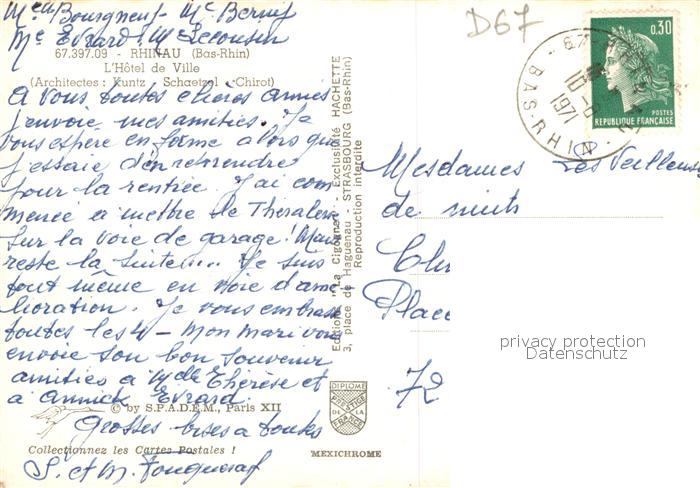 Melles Bourgneuf - Me Bernif
Me Evrard Me Lecousin
67.397.09 - RHINAU (Bas-Rhin)
L'Hôtel de Ville
(Architectes : Kuntz - Schaetzel - Chirot)
A vous toutes chères amies
j'envoie mes amitiés. Je
vous espère en forme alors que
j'essaie d'en reprendre
pour la rentrée. J'ai com
mencé à mettre le
sur la voie de garage! Mais
reste la suite.... Je suis
tout même en voie d'amé
lioration. Je vous embrasse
toutes les 4 - Mon mari vous
envoie son bon souvenir
amitiés à Melle Thérèse et
à Annick Evrard.
© by S.P.A.D.E.M., Paris XII
Grosses bises à toutes
Collectionnez les Cartes Postales !
S. et M.
Editions "La Cigogne" - Exclusivité HACHETTE
3, place de Haguenau - STRASBOURG (Bas-Rhin)
Reproduction interdite
DIPLOME
PRESTIGE
DE LA
FRANCE
MEXICHROME
D67
67
BAS-RHIN
1971
0,30
POSTES
REPUBLIQUE FRANÇAISE
Mesdames Les Veilleuses
de nuits
Place
72
privacy protection
Datenschutz